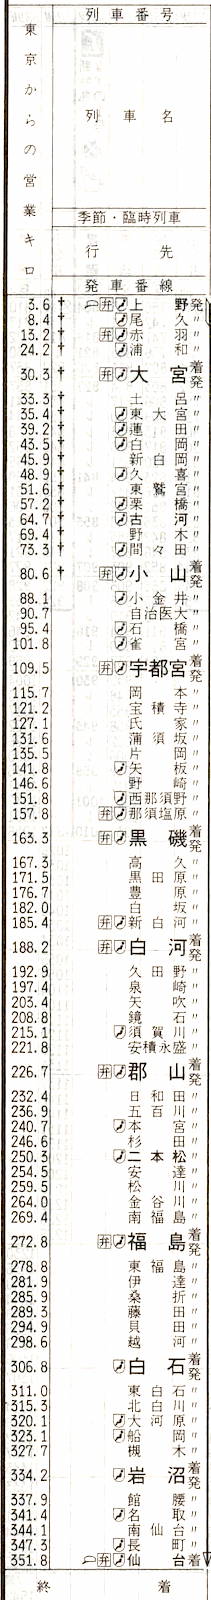 東京からの営業キロ
列車番号
列車名
季節・臨時列車
行先
発車番線
3.6 † 弁 上野発
8.4 † 尾久〃
13.2 † 弁 赤羽〃
24.2 † 浦和〃
30.3 † 弁 大宮着発
33.3 † 土呂〃
35.4 † 東大宮〃
39.2 † 蓮田〃
43.5 † 白岡〃
45.9 † 新白岡〃
48.9 † 久喜〃
51.6 † 東鷲宮〃
57.2 † 栗橋〃
64.7 † 古河〃
69.4 † 野木〃
73.3 † 間々田〃
80.6 † 弁 小山着発
88.1 小金井〃
90.7 自治医大〃
95.4 石橋〃
101.8 雀宮〃
109.5 弁 宇都宮着発
115.7 岡本〃
121.2 宝積寺〃
127.1 氏家〃
131.6 蒲須坂〃
135.5 片岡〃
141.8 矢板〃
146.6 野崎〃
151.8 西那須野〃
157.8 弁 那須塩原〃
163.3 弁 黒磯着発
167.3 高久〃
171.5 黒田原〃
176.7 豊原〃
182.0 白坂〃
185.4 弁 新白河〃
188.2 弁 白河着発
192.9 久田野〃
197.4 泉崎〃
203.4 矢吹〃
208.8 鏡石〃
215.1 須賀川〃
221.8 安積永盛〃
226.7 弁 郡山着発
232.4 日和田〃
236.9 五百川〃
240.7 本宮〃
246.6 杉田〃
250.3 二本松〃
254.5 安達〃
259.5 松川〃
264.0 金谷川〃
269.4 南福島〃
272.8 弁 福島着発
278.8 東福島〃
281.9 伊達〃
285.9 桑折〃
289.3 藤田〃
294.9 貝田〃
298.6 越河〃
306.8 白石着発
311.0 東白石〃
315.3 北白川〃
320.1 大河原〃
323.1 船岡〃
327.7 槻木〃
334.2 岩沼着発
337.9 館腰〃
341.4 名取〃
344.1 南仙台〃
347.3 長町〃
351.8 弁 仙台着
終着